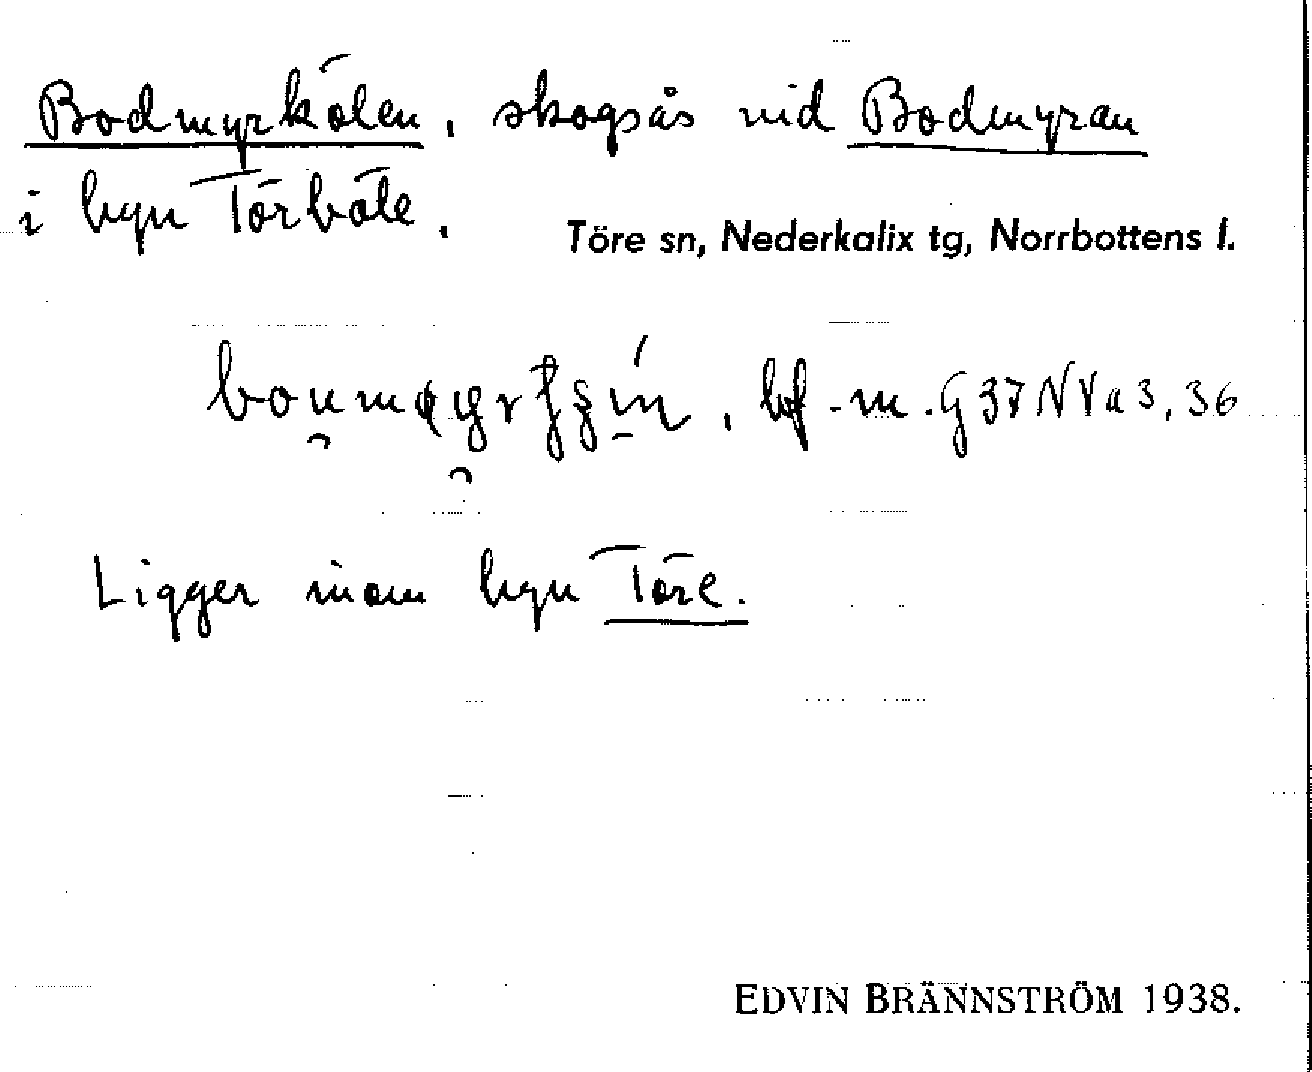 Bodmyrkölen, skogsås vid Bodmyran
i byn Törböle.
Töre sn, Nederkalix tg, Norrbottens l.
bf. m. G 37 NV a 3, 36
Ligger inom byn Töre.
EDVIN BRÄNNSTRÖM 1938.